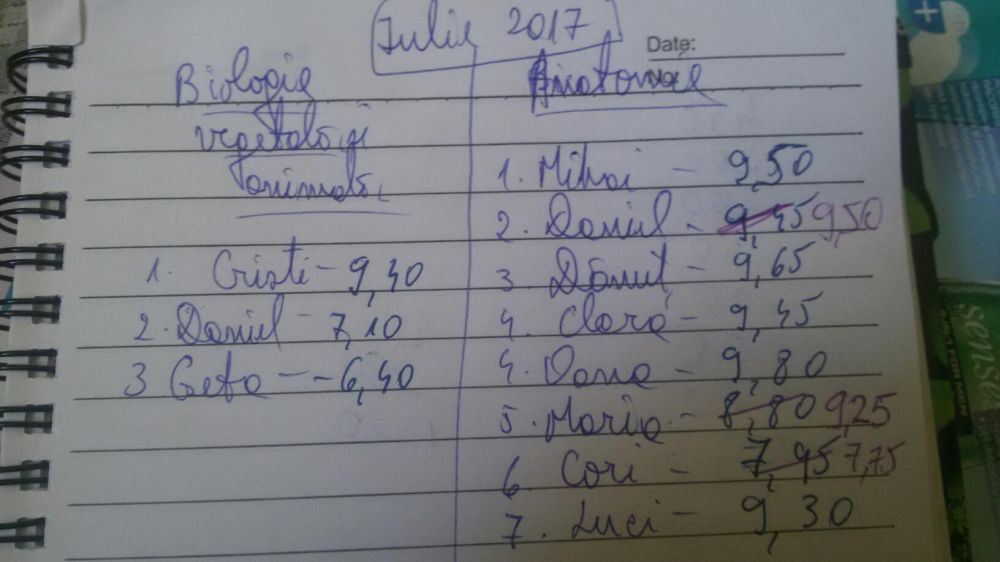 Iulie 2017
Date:
Biologie
vegetală și
animală
1. Cristi - 9,40
2. Daniel - 7,10
3 Geta - - 6,40
Anatomie
1. Mihai - 9,50
2. Daniel - 9,45 9,50
3 Dănuț - 9,65
4. Clara - 9,45
4. Oana - 9,80
5. Maria - 8,80 9,25
6 Cori - 7,95 7,75
7. Luci - 9,30
sense